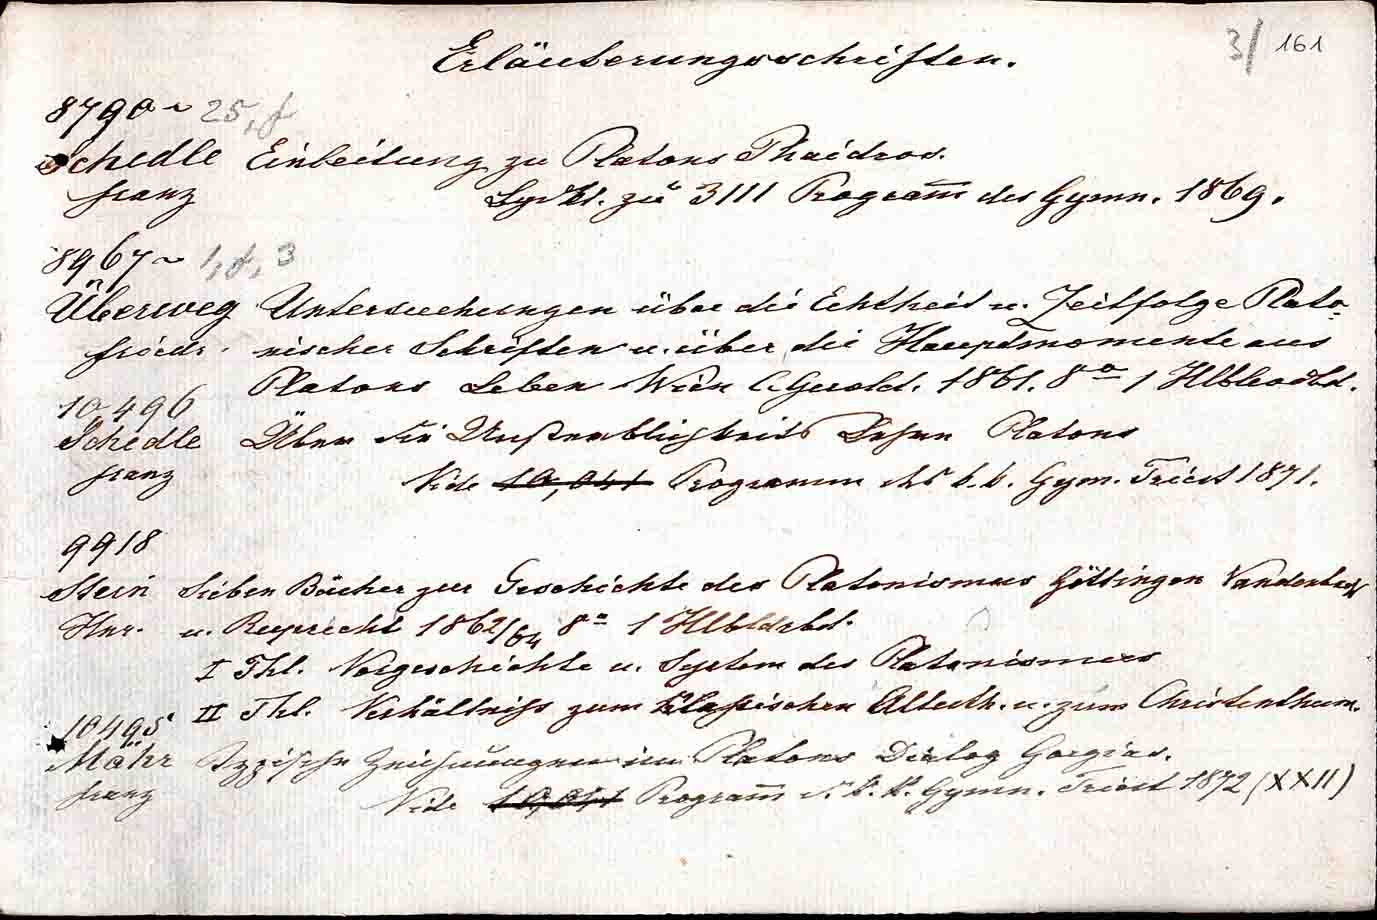 3/ 161
Erläuterungsschriften.
8790~ 25,f
Schedle Einleitung zu Platons Phaidros.
Franz zu 3111 Programm des Gymn. 1869.
8967~ 1,f,3
Überweg Untersuchungen über die Echtheit u. Zeitfolge Plato-
Friedr. nischer Schriften u. über die Hauptmomente aus
Platons Leben Wien C. Gerold. 1861. 8o 1 Hlbledbd.
10496
Schedle Über die Unsterblichkeits Lehre Platons
Franz Vide 10,041 Programm des k. k. Gym. Triest 1871.
9918
Stein Sieben Bücher zur Geschichte des Platonismus Göttingen Vandenhoeck
Hnr. u. Ruprecht 1862/64 8o 1 Hlbldrbd.
I Thl. Vorgeschichte u. System des Platonismus
II Thl. Verhältniss zum klassischen Alterth. u. zum Christenthum.
10495
Mähr Zeichnungen in Platons Dialog Gorgias.
Franz Vide 10,041 Programm d. k. k. Gymn. Triest 1872 (XXII)